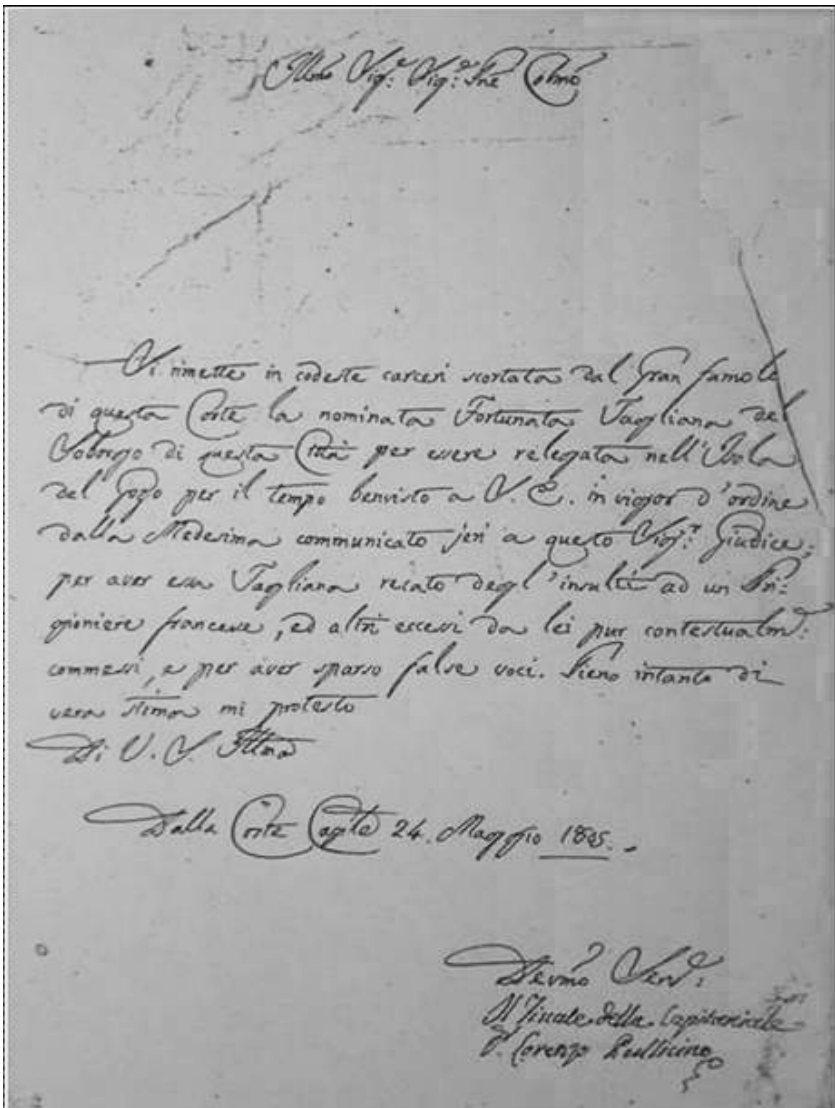 Illmo Sig:e Sig:e Pne Colmo
Si rimette in codeste carceri scortata dal Gran famolo
di questa Corte la nominata Fortunata Tagliana del
Sobrogo di questa Città per essere relegata nell'Isola
del Gozo per il tempo benvisto a V. E. in vigor d'ordine
dalla Medesima communicato jeri a questo Sig:r Giudice;
per aver essa Tagliana recato degl'insulti ad un Pri:
gioniere francese, ed altri eccessi da lei pur contestualme:
commessi, e per aver sparso false voci. Pieno intanto di
vera stima mi protesto
Di V. S. Illma
Dalla Corte Caple 24. Maggio 1805.
Devmo Serve:
Il Fiscale della Capitaniale
Dr Lorenzo Pullicino